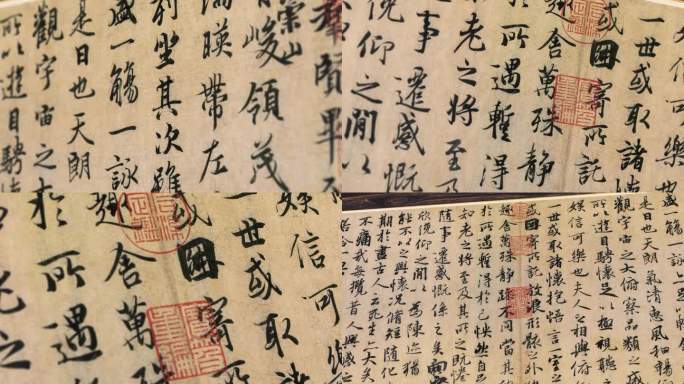 群賢畢
崇山
峻領茂
湍暎帶左
列坐其次雖
盛一觴一詠
是日也天朗
觀宇宙之
所以遊目騁
娛信可樂也
一世或取諸
或因寄所託
趣舍萬殊靜
於所遇暫得
老之將至
事遷感慨
俛仰之閒以
娛信可
一世或取
或因寄
趣舍萬
於所遇
老之
盛一觴一詠
是日也天朗氣清惠風和暢
觀宇宙之大俯察品類之盛
所以遊目騁懷足以極視聽
娛信可樂也夫人之相與俯
一世或取諸懷抱悟言一室之
或因寄所託放浪形骸之外
趣舍萬殊靜躁不同當其
於所遇暫得於己快然自
如老之將至及其所之既惓
隨事遷感慨係之矣向之
欣俛仰之閒以為陳迹猶
能不以之興懷況脩短隨化
期於盡古人云死生亦大矣
不痛哉每攬昔人興感